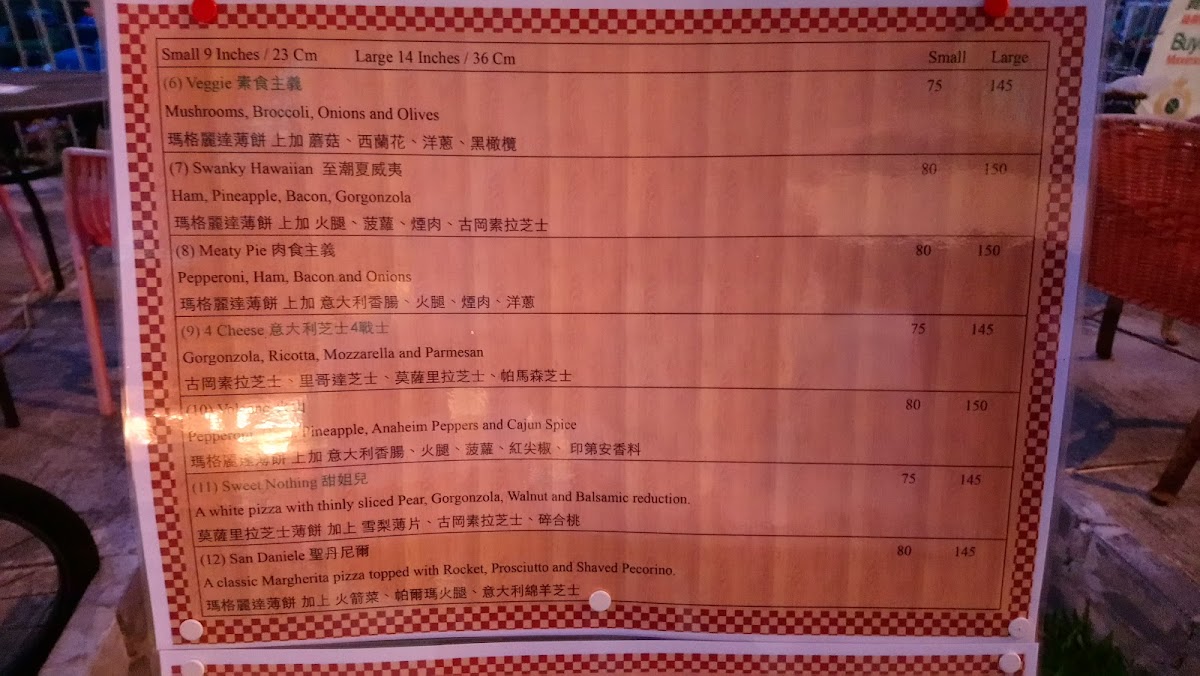 Small 9 Inches / 23 Cm Large 14 Inches / 36 Cm Small Large
(6) Veggie 素食主義 75 145
Mushrooms, Broccoli, Onions and Olives
瑪格麗達薄餅 上加 蘑菇、西蘭花、洋蔥、黑橄欖
(7) Swanky Hawaiian 至潮夏威夷 80 150
Ham, Pineapple, Bacon, Gorgonzola
瑪格麗達薄餅 上加 火腿、菠蘿、煙肉、古岡素拉芝士
(8) Meaty Pie 肉食主義 80 150
Pepperoni, Ham, Bacon and Onions
瑪格麗達薄餅 上加 意大利香腸、火腿、煙肉、洋蔥
(9) 4 Cheese 意大利芝士4戰士 75 145
Gorgonzola, Ricotta, Mozzarella and Parmesan
古岡素拉芝士、里哥達芝士、莫薩里拉芝士、帕馬森芝士
(10) 80 150
Pepperoni, Pineapple, Anaheim Peppers and Cajun Spice
瑪格麗達薄餅 上加 意大利香腸、火腿、菠蘿、紅尖椒、 印第安香料
(11) Sweet Nothing 甜姐兒 75 145
A white pizza with thinly sliced Pear, Gorgonzola, Walnut and Balsamic reduction.
莫薩里拉芝士薄餅 加上 雪梨薄片、古岡素拉芝士、碎合桃
(12) San Daniele 聖丹尼爾 80 145
A classic Margherita pizza topped with Rocket, Prosciutto and Shaved Pecorino.
瑪格麗達薄餅 加上 火箭菜、帕爾瑪火腿、意大利綿羊芝士
Buy